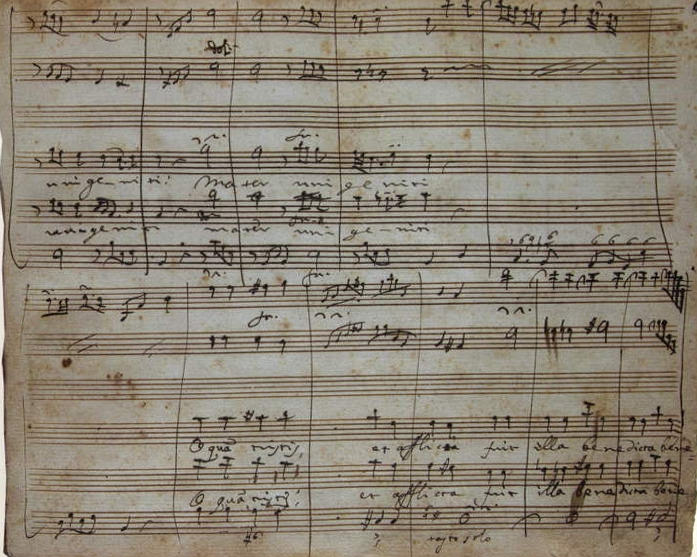 unigeniti: Mater uni geniti
unigeniti mater uni geniti
6 6 6 6 6 6
O quã tristis, et afflicta fuit illa benedicta bene=
O quã tristis; et afflicta fuit illa benedicta bene
tasto solo